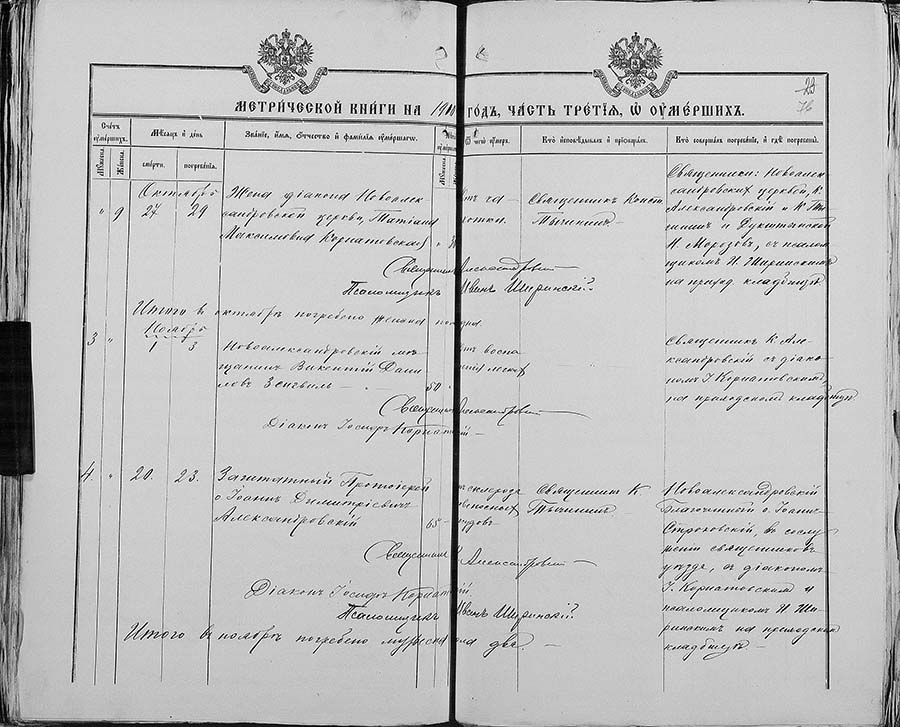 23
76
МЕТРИЧЕСКОЙ КНИГИ НА ГОДЪ, ЧАСТЬ ТРЕТІЯ, Ѡ ОУМЕРШИХЪ.
Счетъ оумершихъ.
Мужска.
Женска.
Мѣсяцъ и день
смерти.
погребенія.
Званіе, имя, отчество и фамилія оумершаго.
Отъ чего оумеръ.
Кто исповѣдывалъ и пріобщалъ.
Кто совершалъ погребеніе, и гдѣ погребены.
Октябрь
" 9 27 29
Жена діакона Новоалек
сандровской церкви, Татіана
Максимовна Корнатовская
Священникъ Конст.
Тычининъ
Священники: Новоалек
сандровскихъ церквей, К.
Александровскій и К. Ты
чининъ и Дукштанской
Н. Морозовъ, съ псалом
щикомъ И. Ширинскимъ
на приход. кладбищѣ
Священникъ Александровскій
Псаломщикъ Иванъ Ширинскій
Итого въ октябрѣ погребено женска пола одна.
Ноябрь
3 " 1 3
Новоалександровскій мѣ
щанинъ Викентій Дани
ловъ 50
отъ воспа
легкихъ
Священникъ К. Але
ксандровскій съ діако
номъ І. Корнатовскимъ,
на приходскомъ кладбищѣ
Священникъ Александровскій
Діаконъ Іосифъ
4 " 20. 23.
Заштатный Протоіерей
о Іоаннъ Димитріевичъ
Александровскій 65
склероза
Священникъ К
Тычининъ
Новоалександровскій
благочинный о. Іоаннъ
въ сослу
женіи священниковъ
уѣзда, съ діакономъ
І. Корнатовскимъ и
псаломщикомъ И. Ши
ринскимъ на приходскомъ
кладбищѣ
Священникъ Александровскій
Діаконъ Іосифъ
Псаломщикъ Иванъ Ширинскій
Итого въ ноябрѣ погребено мужска пола два.